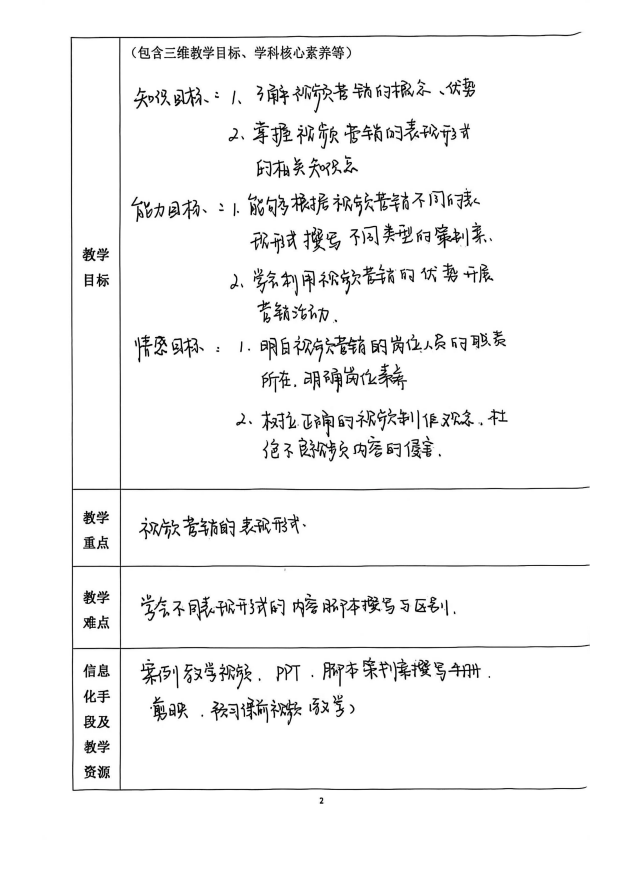 （包含三维教学目标、学科核心素养等）
知识目标：1、了解视频营销的概念、优势
2、掌握视频营销的表现形式
的相关知识点
能力目标：1.能够根据视频营销不同的表
现形式撰写不同类型的策划案.
2、学会利用视频营销的优势开展
营销活动.
教学
目标
情感目标：1.明白视频营销的岗位人员的职责
所在.明确岗位素养
2、树立正确的视频制作观念、杜
绝不良视频内容的侵害.
教学
重点
视频营销的表现形式.
教学
难点
学会不同表现形式的内容脚本撰写与区别.
信息
化手
段及
教学
资源
案例教学视频.PPT.脚本策划案撰写手册.
剪映.预习课前视频（教学）
2